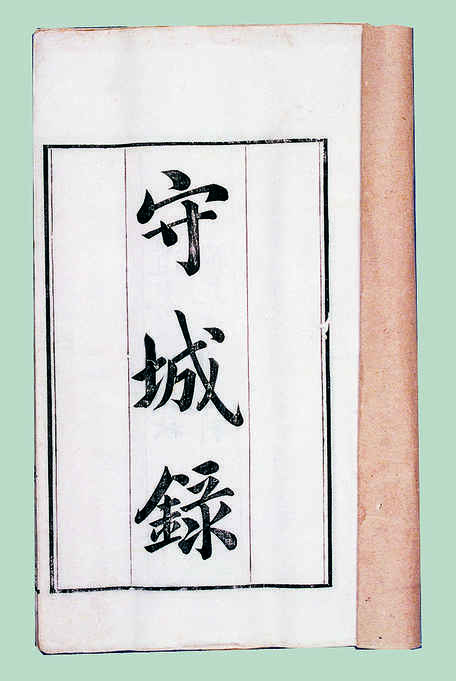 守城錄